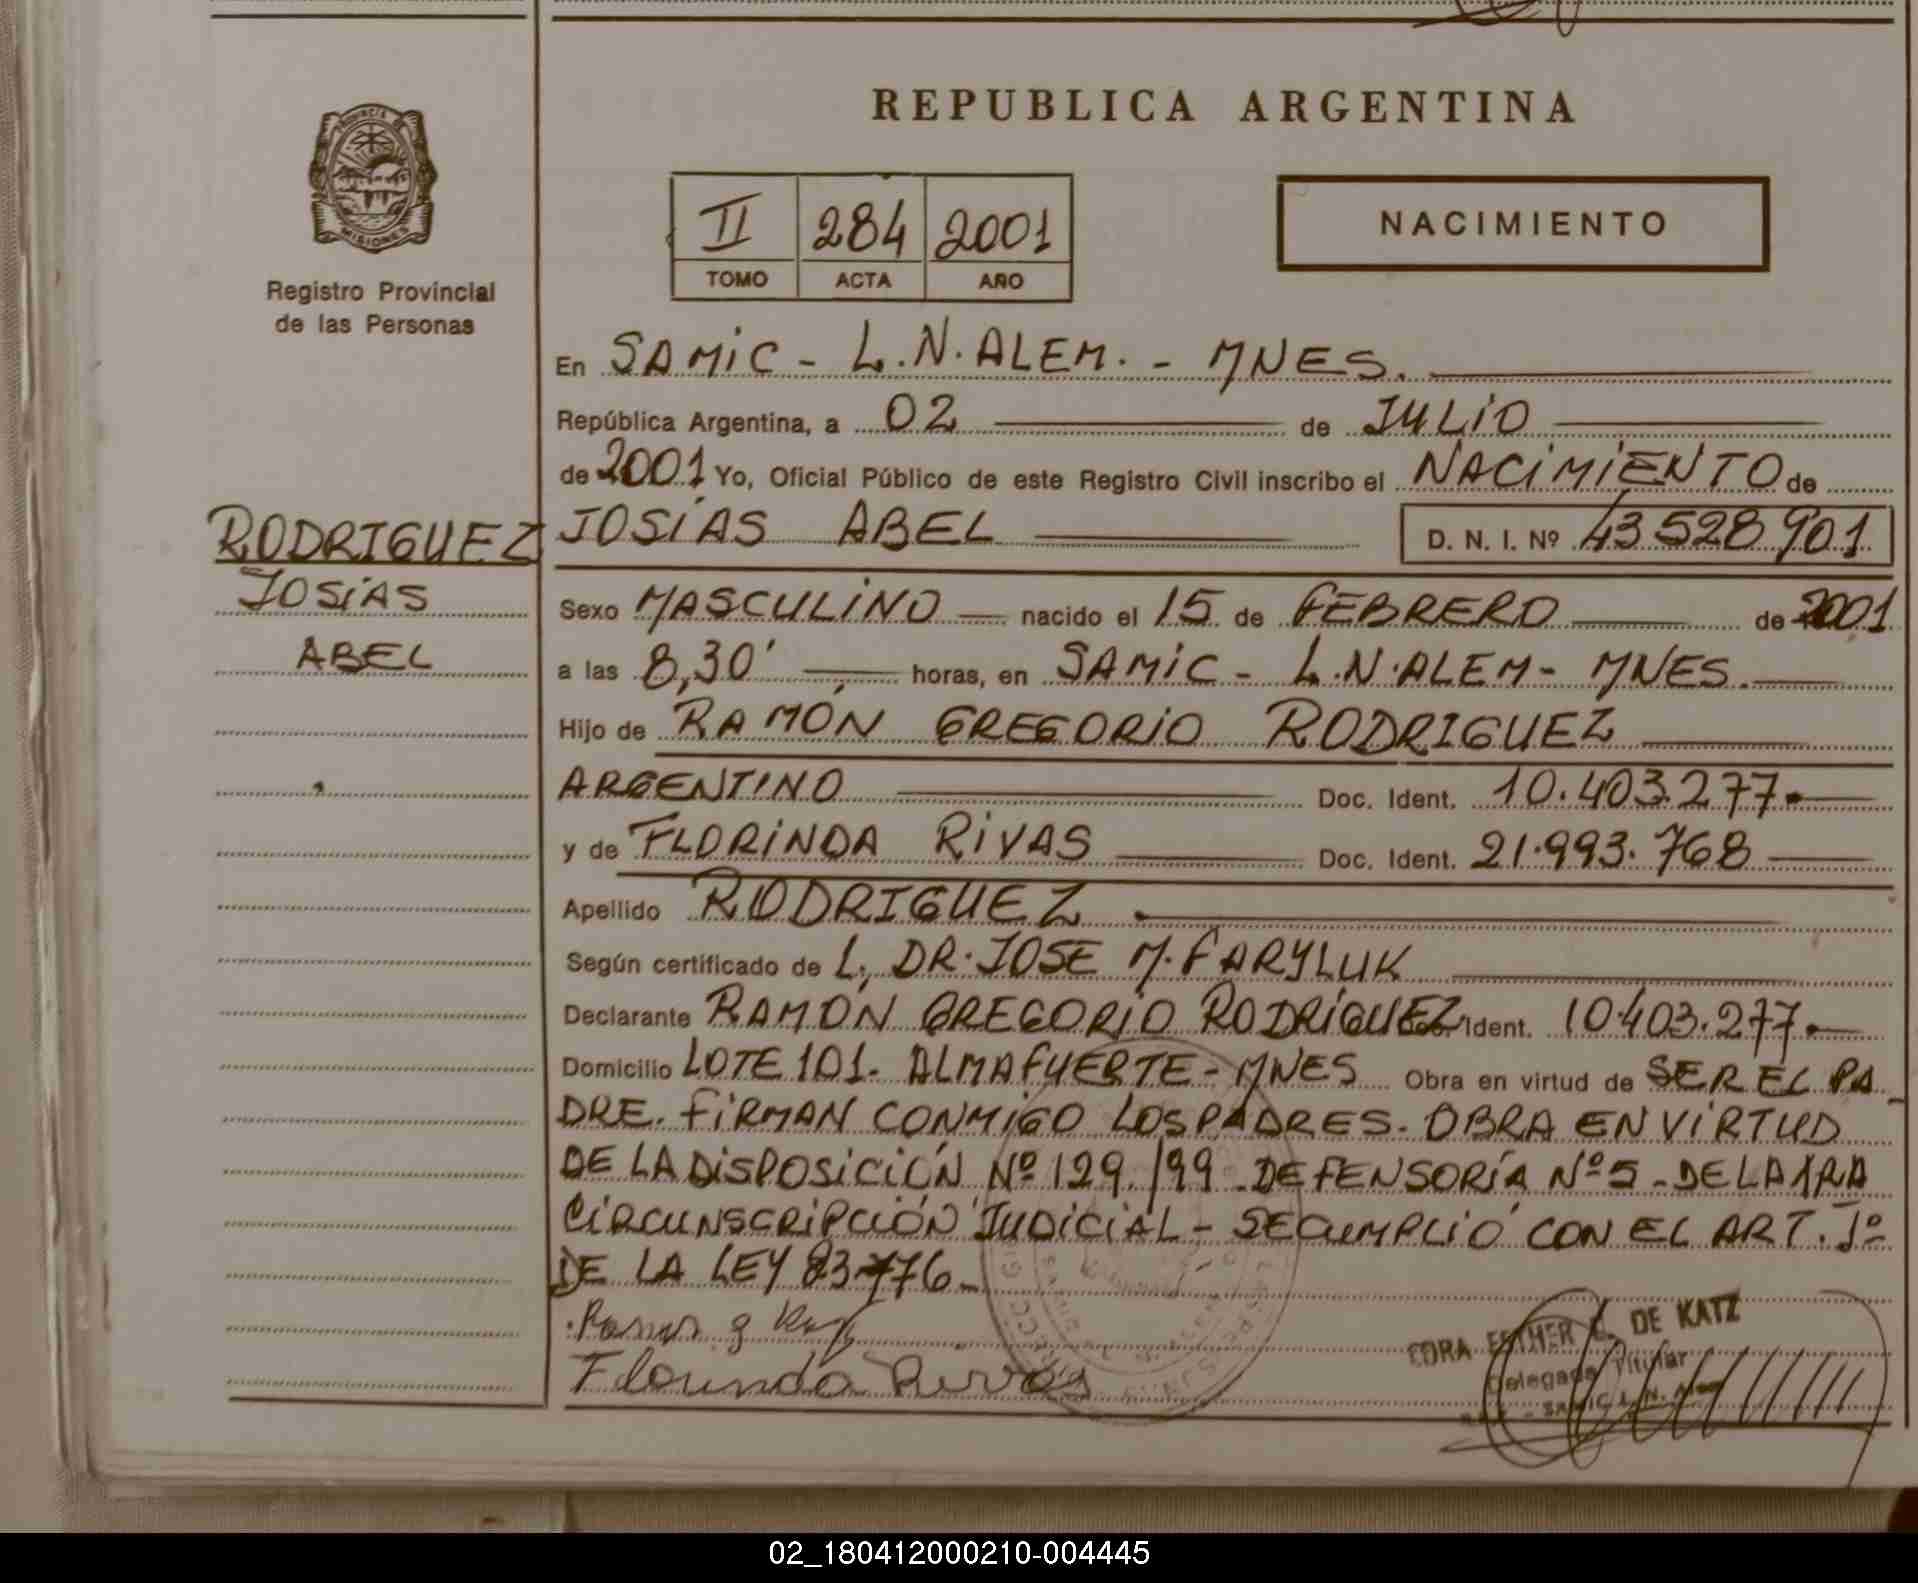 REPUBLICA ARGENTINA
PROVINCIA DE
MISIONES
Registro Provincial
de las Personas
II 284 2001
TOMO ACTA AÑO
NACIMIENTO
En SAMIC - L.N.ALEM. - MNES.
República Argentina, a 02 de JULIO
de 2001 Yo, Oficial Público de este Registro Civil inscribo el NACIMIENTO de
RODRIGUEZ
JOSIAS
ABEL
JOSÍAS ABEL D. N. I. Nº 43528901
Sexo MASCULINO nacido el 15 de FEBRERO de 2001
a las 8,30' horas, en SAMIC - L.N.ALEM - MNES.
Hijo de RAMÓN GREGORIO RODRIGUEZ
ARGENTINO Doc. Ident. 10.403.277
y de FLORINDA RIVAS Doc. Ident. 21.993.768
Apellido RODRIGUEZ
Según certificado de L, DR. JOSE M. FARYLUK
Declarante RAMÓN GREGORIO RODRÍGUEZ Doc. Ident. 10.403.277
Domicilio LOTE 101. ALMAFUERTE - MNES Obra en virtud de SER EL PA_
DRE. FIRMAN CONMIGO LOS PADRES. OBRA EN VIRTUD
DE LA DISPOSICIÓN Nº 129/99 DEFENSORÍA Nº 5 - DE LA 1RA
CIRCUNSCRIPCIÓN JUDICIAL - SE CUMPLIÓ CON EL ART. 1º
DE LA LEY 23776_
Florinda Rivas
CORA ESTHER DE KATZ
Delegada Titular
SAMIC L. N. Alem
02_180412000210-004445